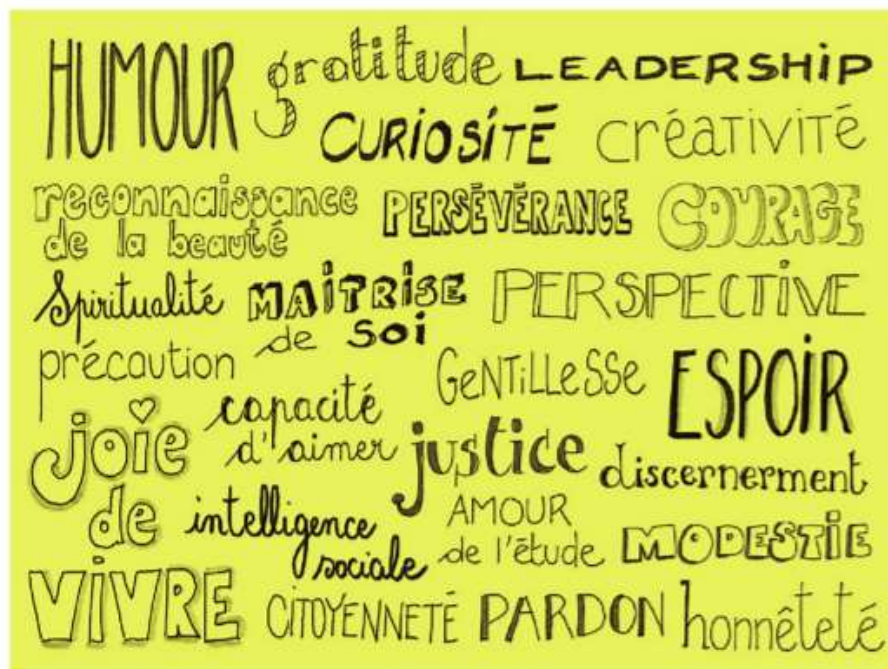 HUMOUR gratitude LEADERSHIP
CURIOSITÉ créativité
reconnaissance
de la beauté
PERSÉVÉRANCE COURAGE
Spiritualité MAITRISE
de SOI
PERSPECTIVE
précaution
GENTILLESSE ESPOIR
joie
de
VIVRE
capacité
d'aimer
justice discernerment
intelligence
sociale
AMOUR
de l'étude
MODESTIE
CITOYENNETÉ PARDON honnêteté